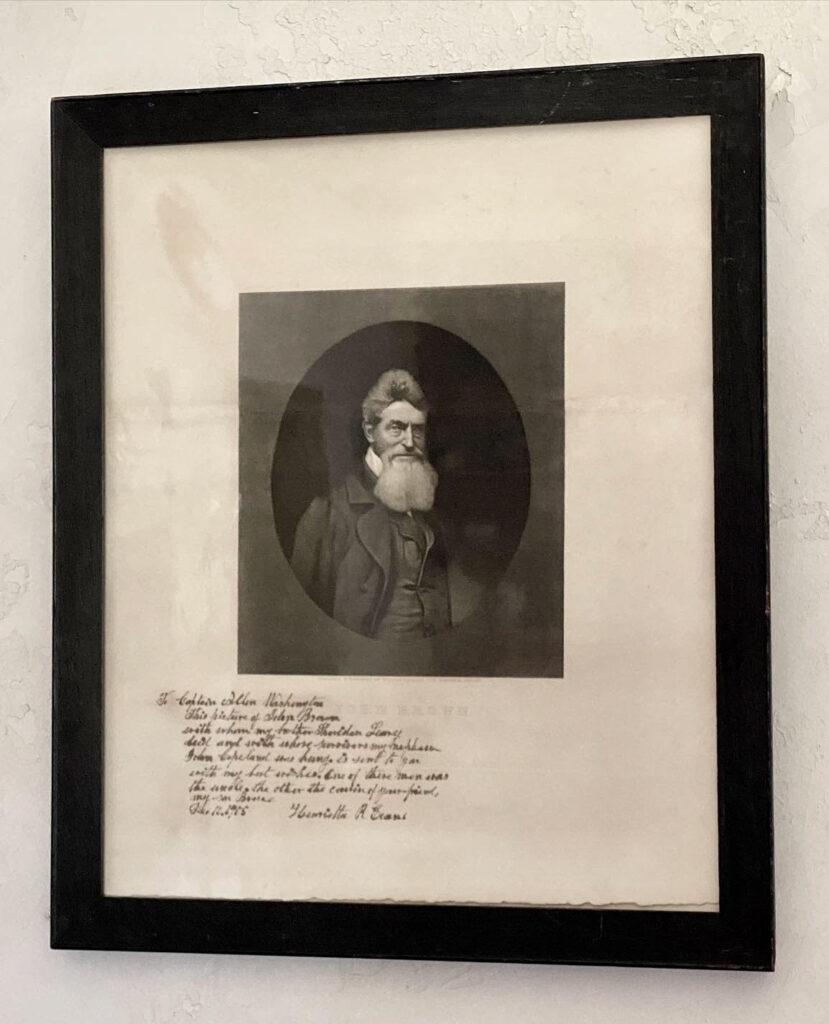 JOHN BROWN
To Captain Allen Washington
This picture of John Brown
with whom my brother Sheridan Leary
died and with whose survivors my nephew
John Copeland was hung, is sent to you
with my best wishes. One of these men was
the uncle, the other the cousin of your friend,
my son
Henrietta R. Evans